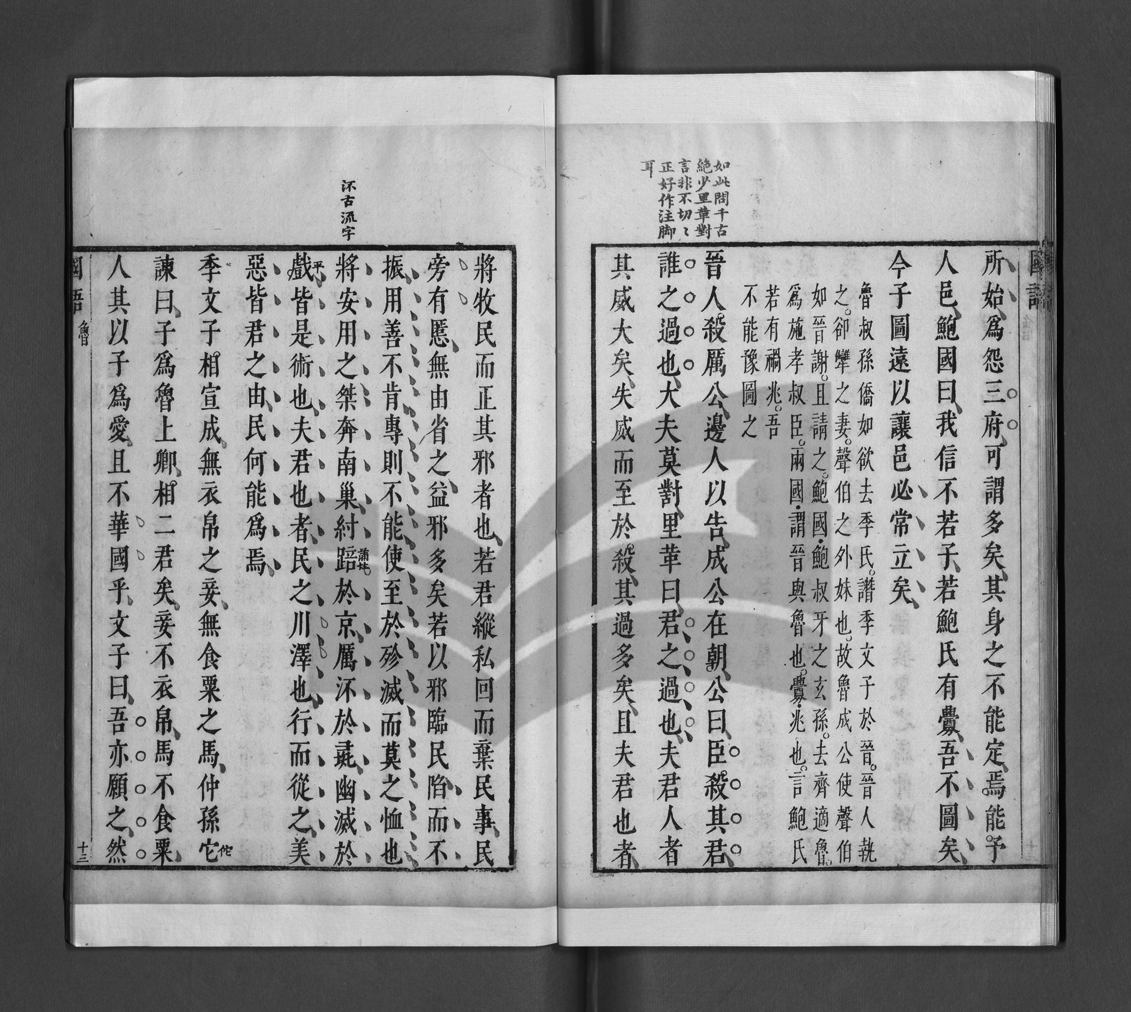 如此問千古
絕少里革對
言非不切〻
正好作注脚
耳
所始爲怨三府可謂多矣其身之不能定焉能予
人邑鮑國曰我信不若子若鮑氏有釁吾不圖矣
今子圖遠以讓邑必常立矣
魯叔孫僑如欲去季氏譖季文子於晉晉人執
之郤犨之妻聲伯之外妹也故魯成公使聲伯
如晉謝且請之鮑國鮑叔牙之玄孫去齊適魯
爲施孝叔臣兩國謂晉與魯也釁兆也言鮑氏
若有禍兆吾
不能豫圖之
晉人殺厲公邊人以告成公在朝公曰臣殺其君
誰之過也大夫莫對里革曰君之過也夫君人者
其威大矣失威而至於殺其過多矣且夫君也者
㳅古流字
將牧民而正其邪者也若君縱私回而棄民事民
旁有慝無由省之益邪多矣若以邪臨民陷而不
振用善不肯專則不能使至於殄滅而莫之恤也
將安用之桀奔南巢紂踣於京厲㳅於彘幽滅於
戲皆是術也夫君也者民之川澤也行而從之美
惡皆君之由民何能爲焉
季文子相宣成無衣帛之妾無食粟之馬仲孫它佗
諫曰子爲魯上卿相二君矣妾不衣帛馬不食粟
人其以子爲愛且不華國乎文子曰吾亦願之然
國語 魯 十三